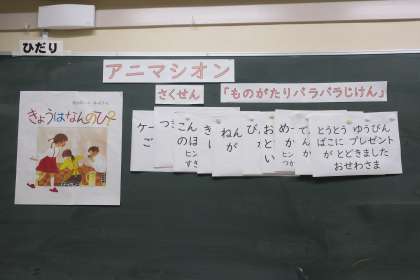 ひだり
アニマシオン
さくせん 「ものがたりバラバラじけん」
きょうはなんのひ?
ケー
ご
つ
こん
のほ
ヒン
すき
き
い
ねん
が
び
お
ど
い
め
か
ヒン
つ
て
ん
か
とうとう ゆうびん
ばこに プレゼント
が とどきました
おせわさま